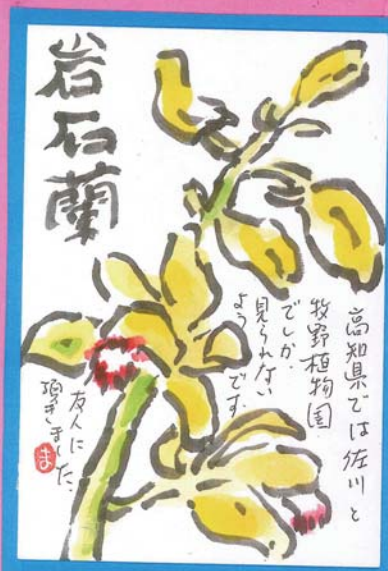 岩石蘭
高知県では佐川と
牧野植物園
でしか
見られない
ようです。
友人に
頂きました。
ま